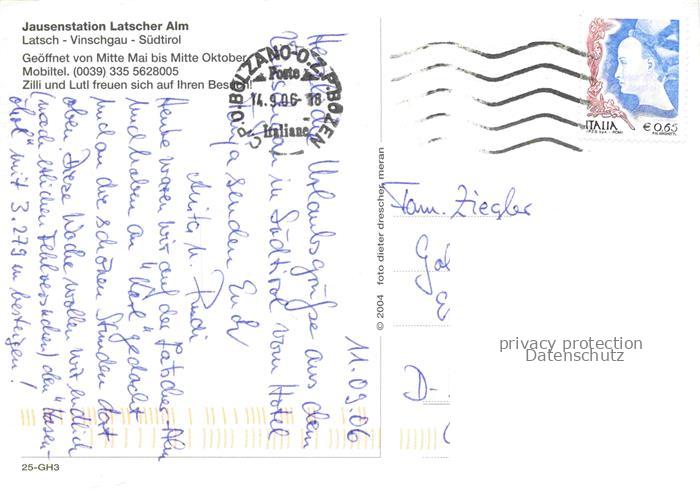 Jausenstation Latscher Alm
Latsch - Vinschgau - Südtirol
Geöffnet von Mitte Mai bis Mitte Oktober
Mobiltel. (0039) 335 5628005
Zilli und Lutl freuen sich auf Ihren Besuch!
C.P.O. BOLZANO-O.Z.P. BOZEN
Poste
14.9.06-18
Italiane
ITALIA
€ 0,65
11.09.06
Herzliche Urlaubsgrüße aus dem
in Südtirol vom Hotel
senden Euch
Anita u. Rudi
Heute waren wir auf der Latscher-Alm
und haben an "Karl" gedacht
und an die schönen Stunden dort
oben. Diese Woche wollen wir endlich
(nach etlichen Fehlversuchen) den "Hasen-
öhrl" mit 3.279 m besteigen!
© 2004 foto dieter drescher, meran
Fam. Ziegler
D-
privacy protection
Datenschutz
25-GH3